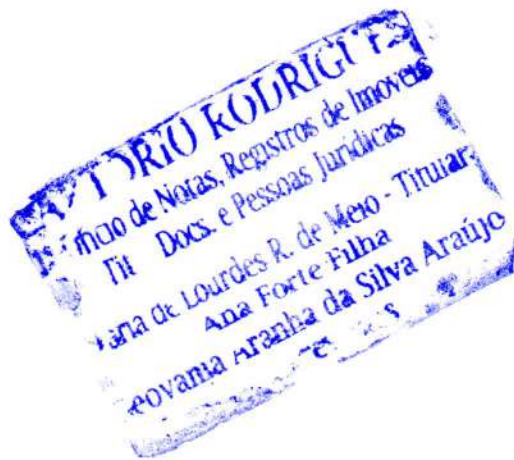 RODRIGUES
de Notas, Registros de Imoveis
Tit Docs. e Pessoas Jurídicas
de Lourdes R. de Melo - Titular
Ana Forte Filha
Aranha da Silva Araújo